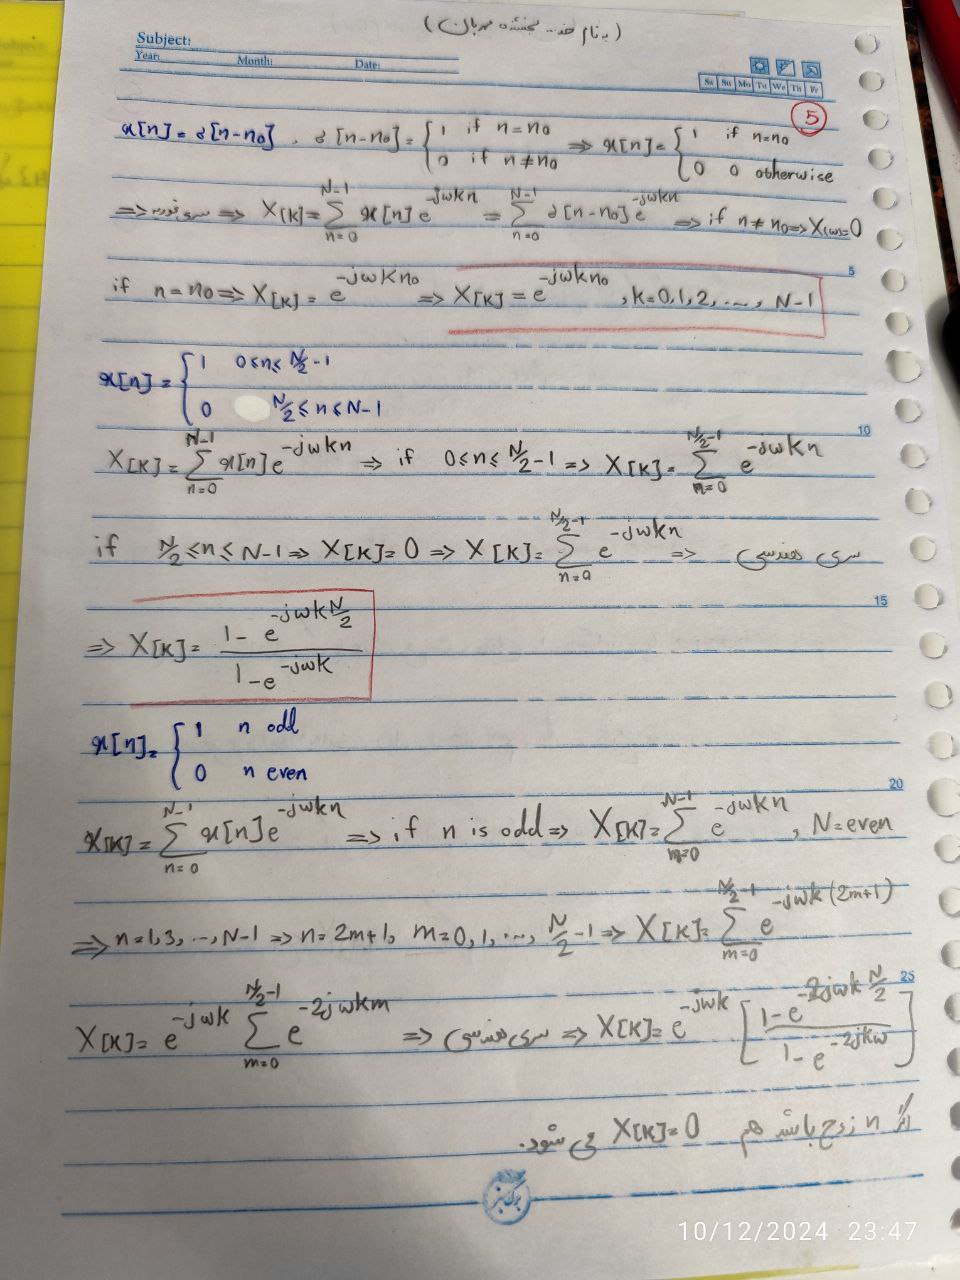 (به نام خدا... بخشنده مهربان)
Subject:
Year: Month: Date:
Sa Su Mo Tu We Th Fr
5
x[n] = δ[n-n₀] , δ[n-n₀] = { 1 if n=n₀ ; 0 if n≠n₀ ⇒ x[n] = { 1 if n=n₀ ; 0 0 otherwise
⇒ سری فوریه ⇒ X[k] = Σ_{n=0}^{N-1} x[n] e^{-jωkn} = Σ_{n=0}^{N-1} δ[n-n₀] e^{-jωkn} ⇒ if n≠n₀ ⇒ X(ω)=0
5
if n=n₀ ⇒ X[k] = e^{-jωkn₀} ⇒ X[k] = e^{-jωkn₀} , k=0,1,2,...., N-1
x[n] = { 1 0≤n≤N/2-1 ; 0 N/2≤n≤N-1
10
X[k] = Σ_{n=0}^{N-1} x[n] e^{-jωkn} ⇒ if 0≤n≤N/2-1 ⇒ X[k] = Σ_{n=0}^{N/2-1} e^{-jωkn}
if N/2≤n≤N-1 ⇒ X[k]=0 ⇒ X[k] = Σ_{n=0}^{N/2-1} e^{-jωkn} ⇒ سری هندسی
15
⇒ X[k] = (1-e^{-jωkN/2})/(1-e^{-jωk})
x[n] = { 1 n odd ; 0 n even
20
X[k] = Σ_{n=0}^{N-1} x[n] e^{-jωkn} ⇒ if n is odd ⇒ X[k] = Σ_{m=0}^{N-1} e^{-jωkn} , N=even
⇒ n=1,3,...,N-1 ⇒ n=2m+1, m=0,1,...,N/2-1 ⇒ X[k] = Σ_{m=0}^{N/2-1} e^{-jωk(2m+1)}
25
X[k] = e^{-jωk} Σ_{m=0}^{N/2-1} e^{-2jωkm} ⇒ سری هندسی ⇒ X[k] = e^{-jωk} [(1-e^{-2jωkN/2})/(1-e^{-2jkω})]
اگر n زوج باشد هم X[k]=0 می شود.
برگ سبز
10/12/2024 23:47